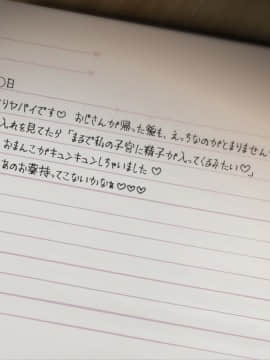 〇日
りヤバイです♡ おじさんが帰った後も、えっちなのがとまりません
入れを見てたら「まるで私の子宮に精子が入ってくるみたい♡」
おまんこがキュンキュンしちゃいました♡
あのお薬持ってこないかなぁ♡♡♡